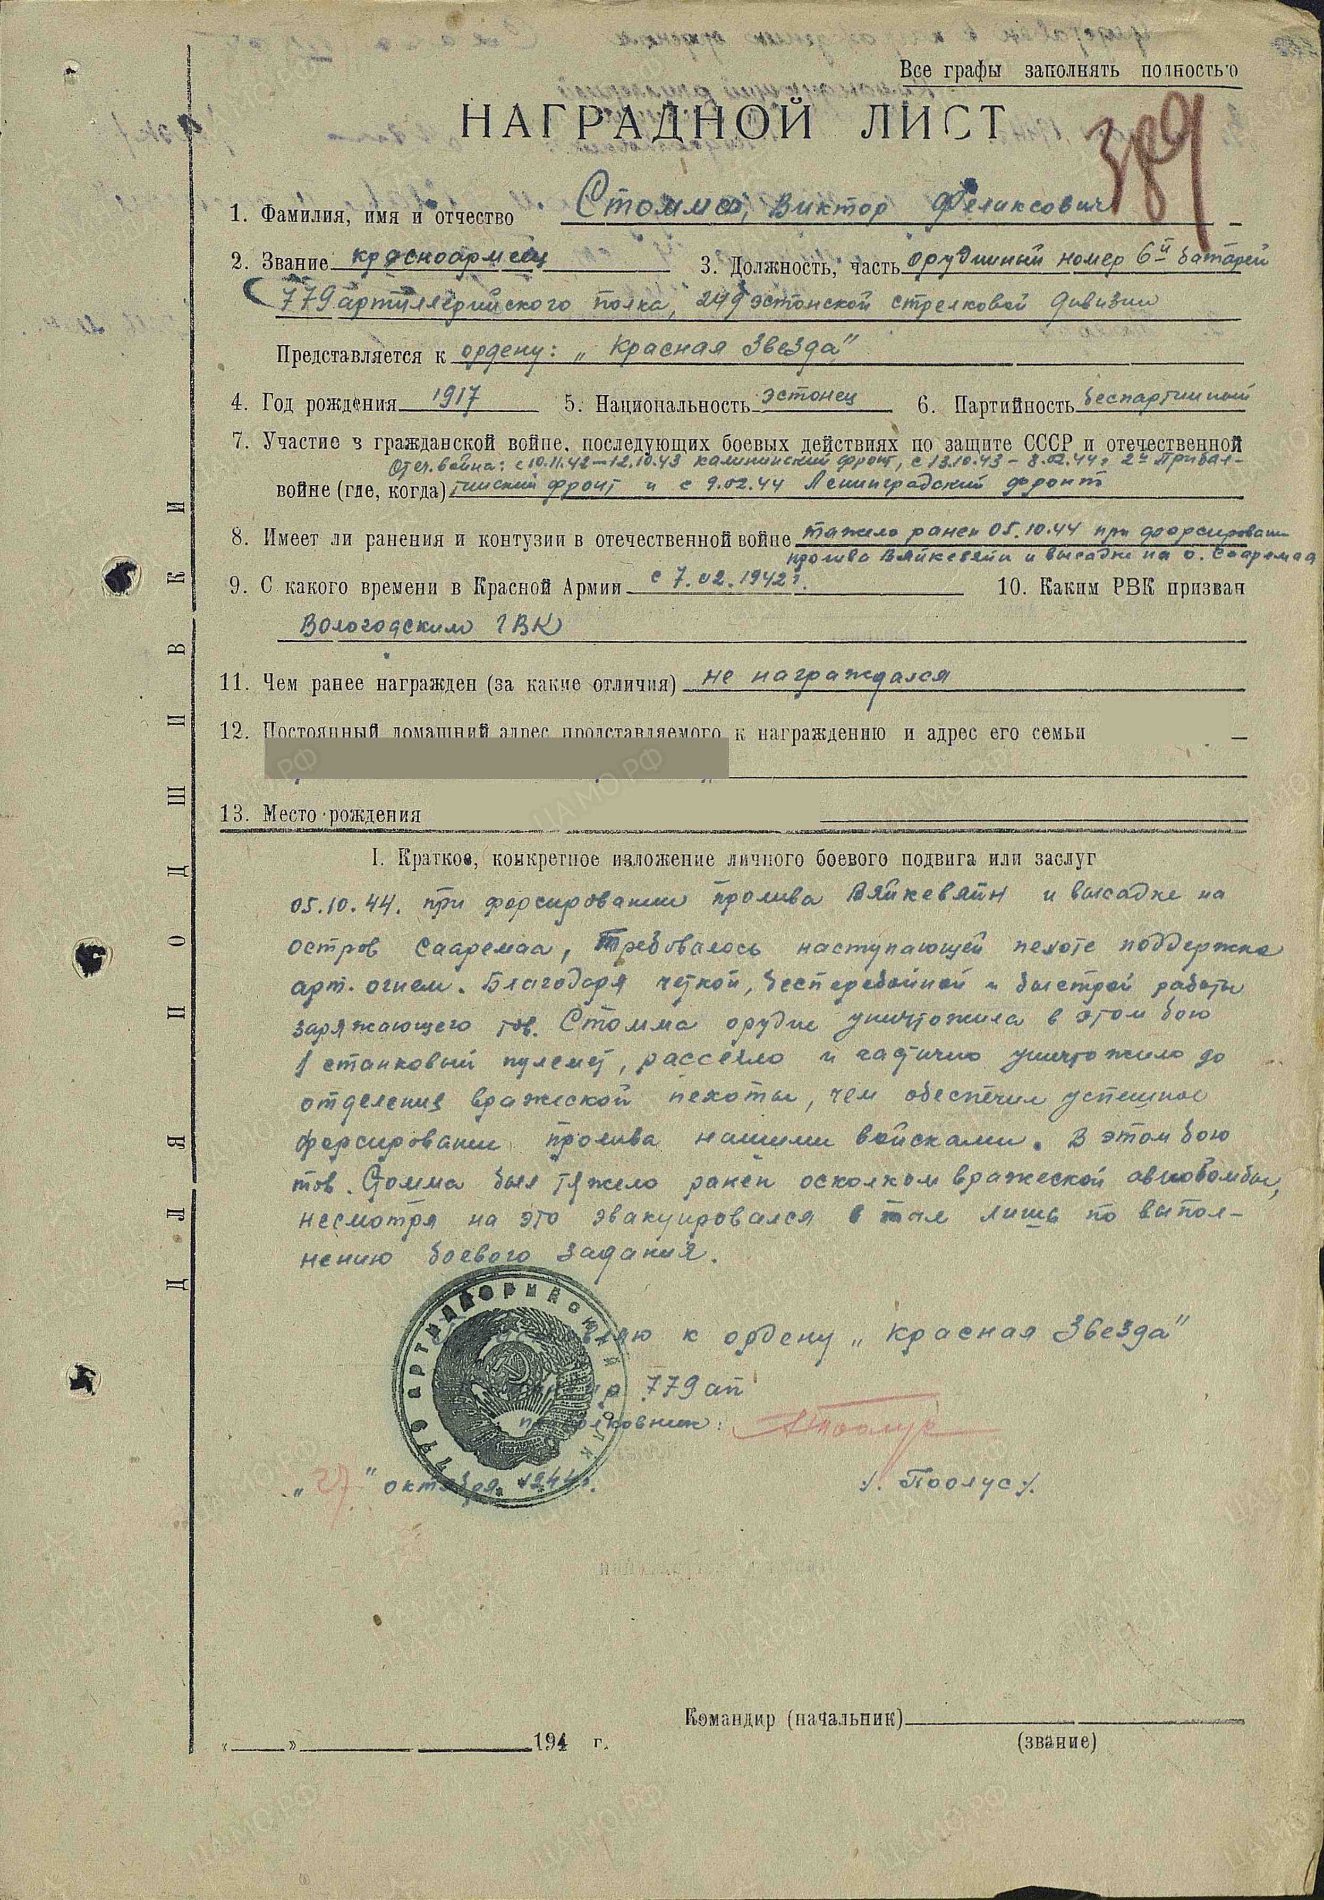 Все графы заполнять полностью
НАГРАДНОЙ ЛИСТ
389
1. Фамилия, имя и отчество Стомма, Виктор Феликсович
2. Звание красноармеец 3. Должность, часть орудийный номер 6й батареи
779 артиллерийского полка, 249 эстонской стрелковой дивизии
Представляется к ордену: „Красная Звезда"
4. Год рождения 1917 5. Национальность эстонец 6. Партийность беспартийный
7. Участие в гражданской войне, последующих боевых действиях по защите СССР и отечественной
Отеч. война: с 10.11.42–12.10.43 калининский фронт, с 13.10.43 – 8.02.44г 2й Прибал-
войне (где, когда) тийский фронт и с 9.02.44 Ленинградский фронт
8. Имеет ли ранения и контузии в отечественной войне тяжело ранен 05.10.44 при форсировании
пролива Вяйкевяйн и высадке на о. Сааремаа
9. С какого времени в Красной Армии с 7.02.1942г. 10. Каким РВК призван
Вологодским ГВК
11. Чем ранее награжден (за какие отличия) не награждался
12. Постоянный домашний адрес представляемого к награждению и адрес его семьи
13. Место рождения
I. Краткое, конкретное изложение личного боевого подвига или заслуг
05.10.44. при форсировании пролива Вяйкевяйн и высадке на
остров Сааремаа, требовалось наступающей пехоте поддержка
арт. огнем. Благодаря четкой, бесперебойной и быстрой работы
заряжающего тов. Стомма орудие уничтожила в этом бою
1 станковый пулемет, рассеяло и частично уничтожило до
отделения вражеской пехоты, чем обеспечил успешное
форсировании пролива нашими войсками. В этом бою
тов. Стомма был тяжело ранен осколком вражеской авиобомбы,
несмотря на это эвакуировался в тыл лишь по выпол-
нению боевого задания.
к ордену „Красная Звезда"
779 ап
подполковник:
„27" октября 1944г. /. Поолус /.
779 АРТИЛЛЕРИЙСКИЙ ПОЛК
Командир (начальник)
« » 194 г. (звание)
ДЛЯ ПОДШИВКИ
ЦАМО.РФ